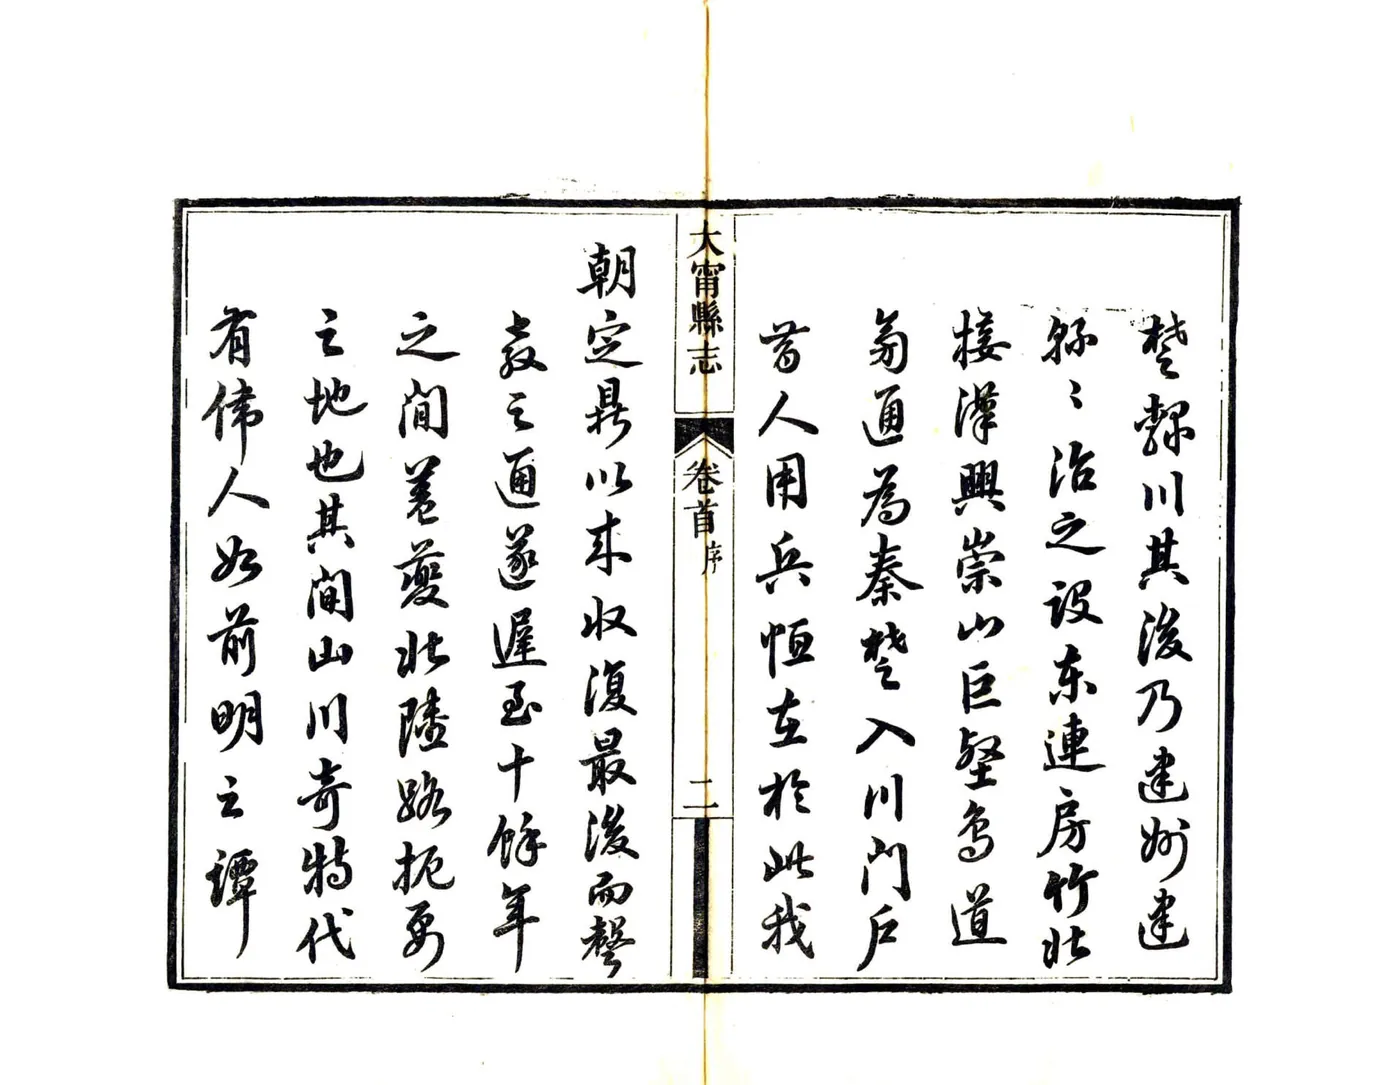 楚隸川其後乃建州建
縣〻治之設東連房竹北
接漢興崇山巨壑鳥道
旁通為秦楚入川門戶
昔人用兵恆在於此我
大甯縣志
卷首 序
二
朝定鼎以來收復最後而聲
教之通遂遲至十餘年
之間蓋夔北隘路扼要
之地也其間山川奇特代
有偉人如前明之譚